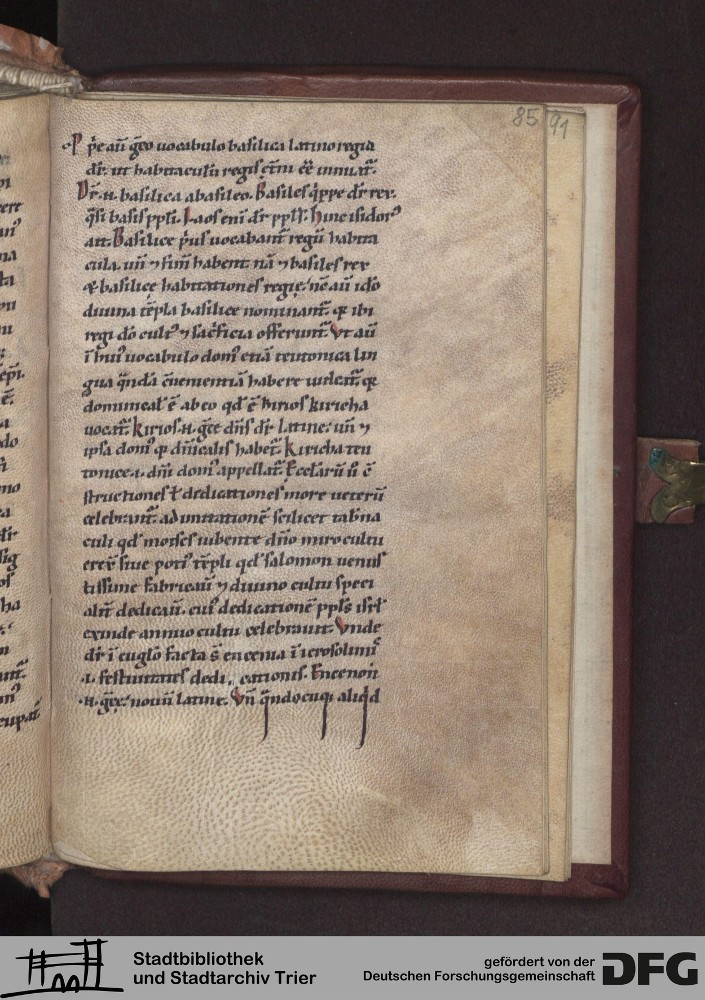 85 91
Pp̄e aū g̃co uocabulo basilica latino regia
dr̄. ut habitaculū regis et̄ni eē innuat̄.
Dr̄.n. basilica abasileo. Basiles q̇ppe dr̄ rex.
q̄si basis ppl̄i. Laos eni dr̄ ppl̄s. hinc isidorꝰ
ait. Basilice ṗus uocabant̄ regū habita
cula. uñ ⁊ nam̄ habent. nā ⁊ basiles rex
⁊ basilice habitationes regię. nc̄ aū idō
diuina tēpla basilice nominant̄. q̄ ibi
regi dō cultꝰ ⁊ sac̄ficia offerunt̄. Vt aū
ī huiꝰ uocabulo domꝰ etiā teutonica lin
gua q̄ndā c̄uenientiā habere uideat̄. q̄
dominicalˢ ē ab eo qd̄ ē kirios kiricha
uocat̄. kirios.n. g̃ce dn̄s dr̄ latine. uñ ⁊
ipsa domꝰ q̄ dn̄icalis habet̄. kiricha teu
tonice .i. dn̄i domꝰ appellat̄. Ęcclar̄ū ū ē
structiones ł dedicationes more ueterū
celebrant̄. ad imitationē scilicet tab̄na
culi qd̄ moises iubente dn̄o miro cultu
erex̄ siue potiꝰ tēpli qd̄ salomon uenus
tissime fabricauˉ ⁊ diuino cultu speci
alit̄ dedicauˉ. cuiꝰ dedicationē ppl̄s isr̄l
exinde annuo cultu celebrauit. Vnde
dr̄ ī euglō facta s̄ encenia ī ierosolimiˢ
.i. festiuitates dedicationis. Encenon
.n. g̃ce. nouū latine. Vñ q̄ndocuq; aliq̇d
Stadtbibliothek
und Stadtarchiv Trier
gefördert von der
Deutschen Forschungsgemeinschaft
DFG